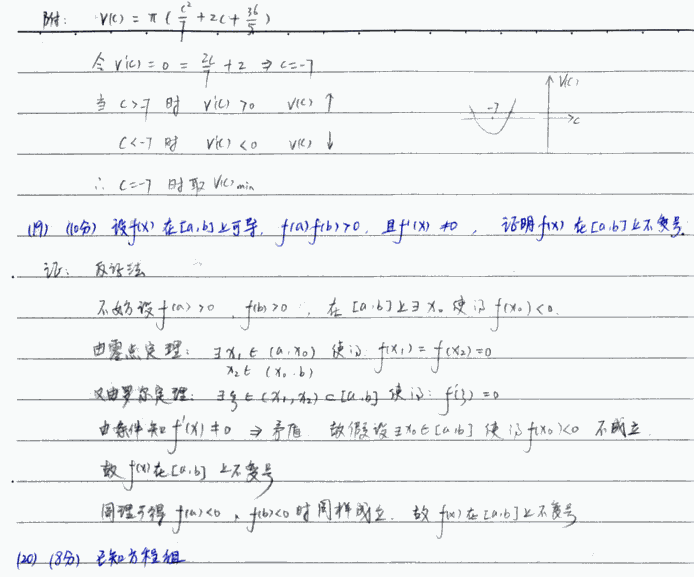 附: V(c) = π(c²/7 + 2c + 36/5)
令 V'(c) = 0 = 2c/7 + 2 ⇒ c=-7
当 c>-7 时 V'(c) >0 V(c) ↑
c<-7 时 V'(c) <0 V(c) ↓
∴ c=-7 时取 V(c)min
V(c)
-7
c
(19) (10分) 设f(x)在[a,b]上可导, f(a)f(b)>0, 且f'(x)≠0, 证明f(x)在[a,b]上不变号.
证: 反证法
不妨设 f(a)>0, f(b)>0, 在[a,b]上∃x₀使得f(x₀)<0.
由零点定理: ∃x₁∈(a,x₀) 使得: f(x₁)=f(x₂)=0
x₂∈(x₀,b)
又由罗尔定理: ∃ξ∈(x₁,x₂)⊂[a,b] 使得: f'(ξ)=0
由条件知f'(x)≠0 ⇒ 矛盾 故假设∃x₀∈[a,b]使得f(x₀)<0 不成立
故f(x)在[a,b]上不变号
同理可得 f(a)<0、f(b)<0时同样成立. 故f(x)在[a,b]上不变号
(20) (8分) 已知方程组